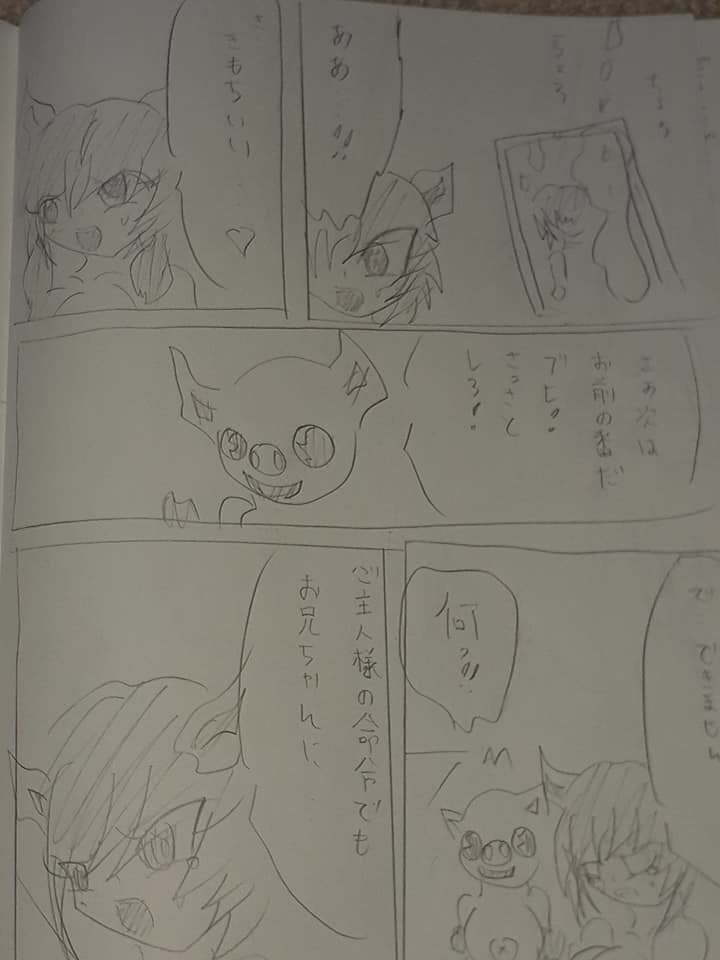 ああ…!!
さ、
きもちいい…♡
さあ次は
お前の番だ
ブヒ!
さっさと
しろ!
で できません
何っ!!
ご主人様の命令でも
お兄ちゃんに…